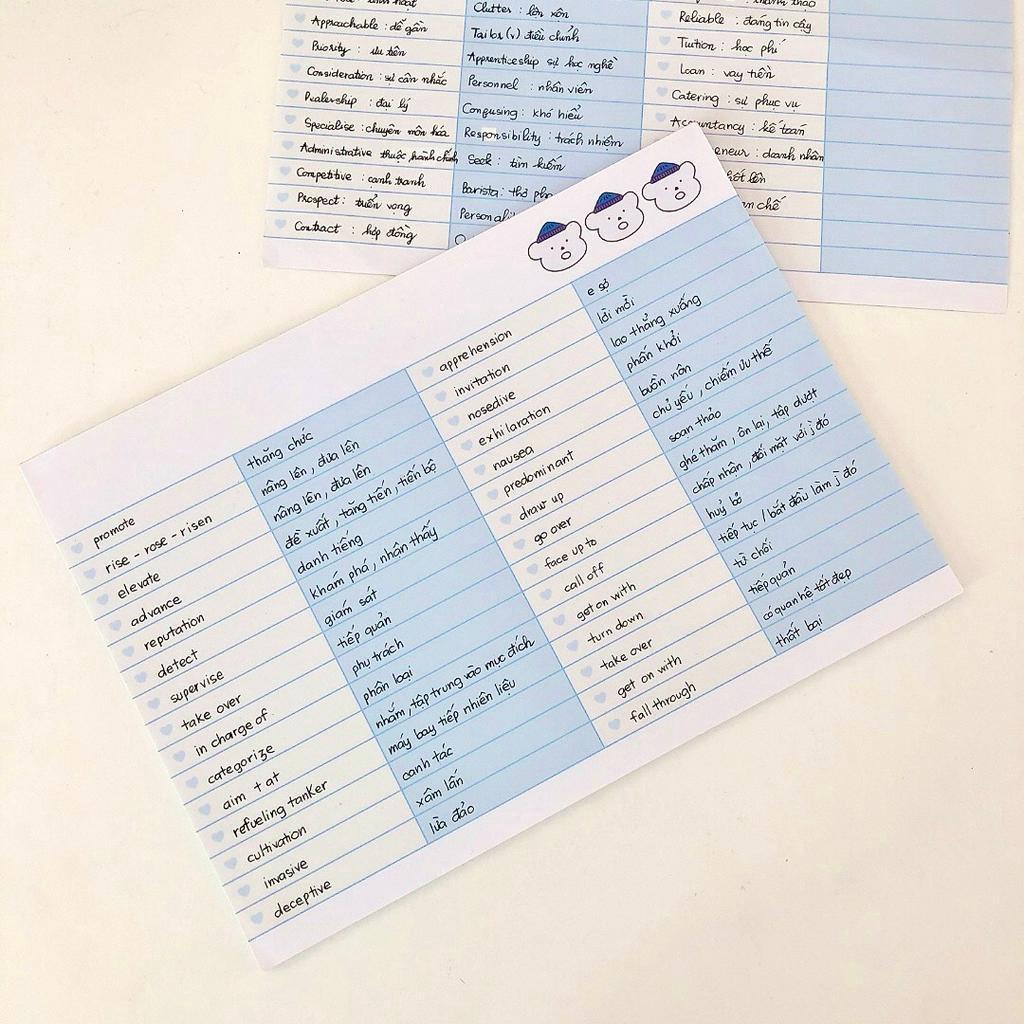 Approachable : dễ gần
Priority : ưu tiên
Consideration : sự cân nhắc
Dealership : đại lý
Specialise : chuyên môn hóa
Administrative thuộc hành chính
Competitive : cạnh tranh
Prospect : triển vọng
Contract : hợp đồng
Clutter : lộn xộn
Tailor (v) điều chỉnh
Apprenticeship sự học nghề
Personnel : nhân viên
Confusing : khó hiểu
Responsibility : trách nhiệm
Seek : tìm kiếm
Barista : thợ pha
Reliable : đáng tin cậy
Tuition : học phí
Loan : vay tiền
Catering : sự phục vụ
Accountancy : kế toán
eneur : doanh nhân
promote thăng chức
rise - rose - risen nâng lên , đưa lên
elevate nâng lên , đưa lên
advance đề xuất , tăng tiến , tiến bộ
reputation danh tiếng
detect khám phá , nhận thấy
supervise giám sát
take over tiếp quản
in charge of phụ trách
categorize phân loại
aim + at nhắm , tập trung vào mục đích
refueling tanker máy bay tiếp nhiên liệu
cultivation canh tác
invasive xâm lấn
deceptive lừa đảo
apprehension e sợ
invitation lời mời
nosedive lao thẳng xuống
exhilaration phấn khởi
nausea buồn nôn
predominant chủ yếu , chiếm ưu thế
draw up soạn thảo
go over ghé thăm , ôn lại , tập dượt
face up to chấp nhận , đối mặt với j đó
call off huỷ bỏ
get on with tiếp tục / bắt đầu làm j đó
turn down từ chối
take over tiếp quản
get on with có quan hệ tốt đẹp
fall through thất bại